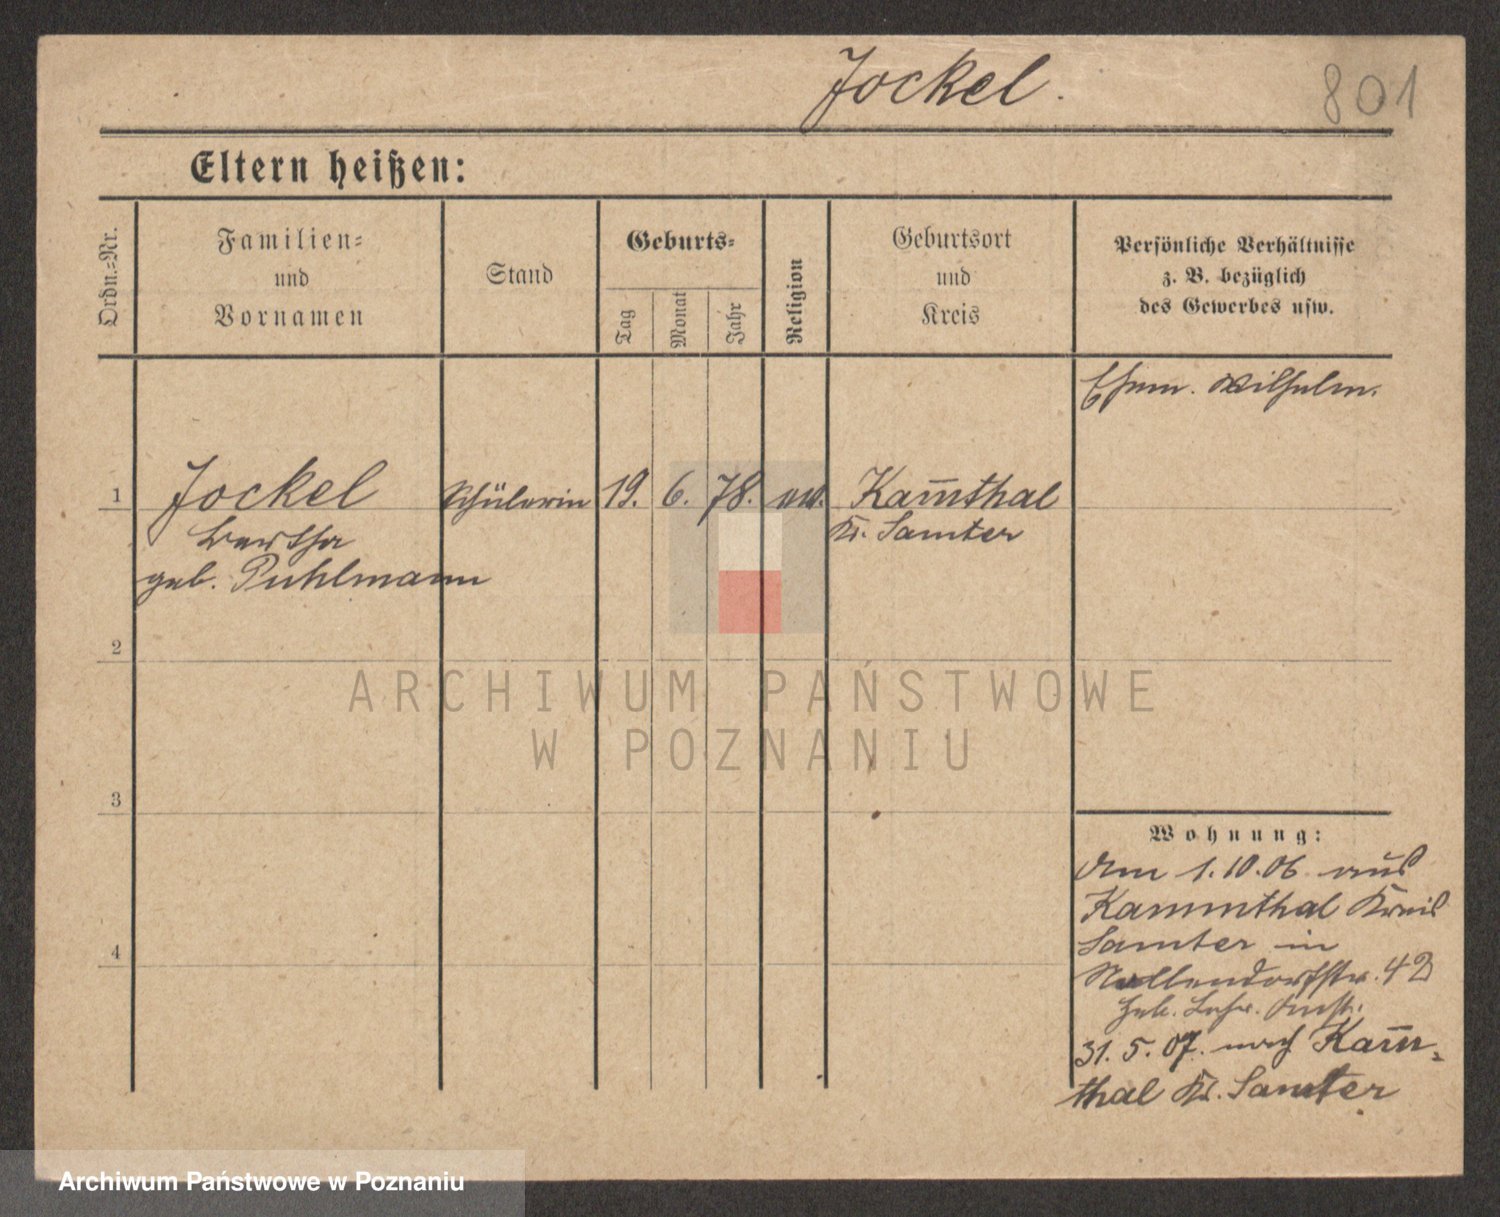 Jockel.
801
Eltern heißen:
Ordn.-Nr.
Familien-
und
Vornamen
Stand
Geburts-
Tag
Monat
Jahr
Religion
Geburtsort
und
Kreis
Persönliche Verhältnisse
z. B. bezüglich
des Gewerbes usw.
Ehem. Wilhelm.
1
Jockel
Schülerin
19.
6.
78.
ev.
Kam̅thal
Bertha
Kr. Samter
geb. Puhlmann
2
3
4
Wohnung:
Am 1.10.06 aus
Kammthal Kreis
Samter in
Nollendorfstr. 42
Heb.
31. 5. 07. nach Kam̅-
thal Kr. Samter
ARCHIWUM PAŃSTWOWE
W POZNANIU
Archiwum Państwowe w Poznaniu